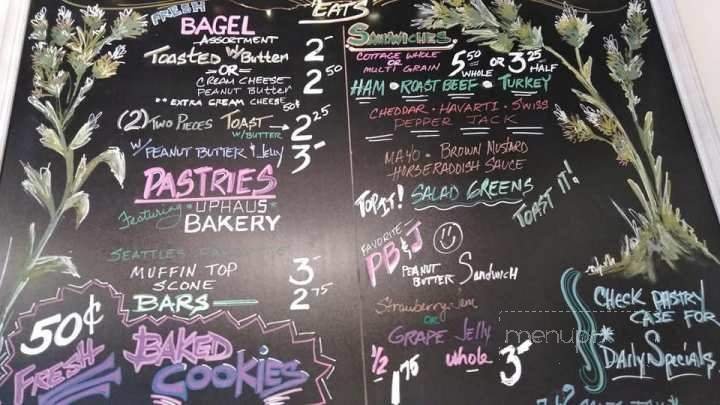 EATS
FRESH
BAGEL
ASSORTMENT
TOASTED W/ Butter 2-
=OR=
CREAM CHEESE
PEANUT Butter 2 50
** EXTRA CREAM CHEESE 50¢
(2) TWO PIECES TOAST W/BUTTER → 2 25
W/ PEANUT BUTTER & Jelly 3-
PASTRIES
Featuring • UPHAUS •
BAKERY
SEATTLES FAVORITE
MUFFIN TOP 3-
SCONE
BARS 2 75
50¢
FRESH BAKED
COOKIES
SANDWICHES
COTTAGE WHOLE
OR
MULTI GRAIN
5 50 WHOLE OR 3 25 HALF
HAM • ROAST BEEF • TURKEY
CHEDDAR • HAVARTI • SWISS
PEPPER JACK
MAYO • BROWN MUSTARD
HORSERADDISH SAUCE
TOP IT! SALAD GREENS
TOAST IT!
FAVORITE
PB&J
PEANUT BUTTER SANDWICH
Strawberry Jam
OR
GRAPE Jelly
1/2 1 75 whole 3-
CHECK PASTRY
CASE FOR
DAILY SPECIALS
menupix